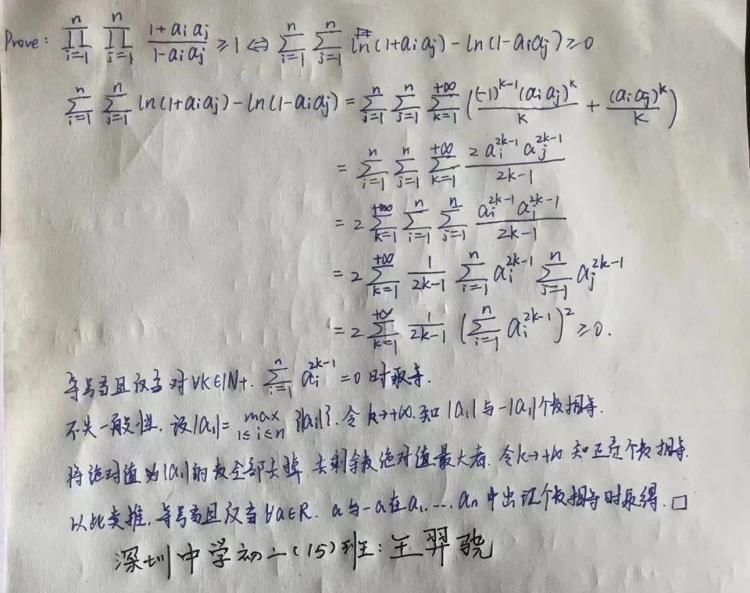 Prove: $\prod_{i=1}^{n} \prod_{j=1}^{n} \frac{1+a_i a_j}{1-a_i a_j} \geq 1 \Leftrightarrow \sum_{i=1}^{n} \sum_{j=1}^{n} \ln(1+a_i a_j) - \ln(1-a_i a_j) \geq 0.$
$\sum_{i=1}^{n} \sum_{j=1}^{n} \ln(1+a_i a_j) - \ln(1-a_i a_j) = \sum_{i=1}^{n} \sum_{j=1}^{n} \sum_{k=1}^{+\infty} \left( \frac{(-1)^{k-1}(a_i a_j)^k}{k} + \frac{(a_i a_j)^k}{k} \right)$
$= \sum_{i=1}^{n} \sum_{j=1}^{n} \sum_{k=1}^{+\infty} \frac{2 a_i^{2k-1} a_j^{2k-1}}{2k-1}$
$= 2 \sum_{k=1}^{+\infty} \sum_{i=1}^{n} \sum_{j=1}^{n} \frac{a_i^{2k-1} a_j^{2k-1}}{2k-1}$
$= 2 \sum_{k=1}^{+\infty} \frac{1}{2k-1} \sum_{i=1}^{n} a_i^{2k-1} \sum_{j=1}^{n} a_j^{2k-1}$
$= 2 \sum_{k=1}^{+\infty} \frac{1}{2k-1} \left( \sum_{i=1}^{n} a_i^{2k-1} \right)^2 \geq 0.$
等号当且仅当对 $\forall k \in \mathbb{N}+.$ $\sum_{i=1}^{n} a_i^{2k-1} = 0$ 时取等.
不失一般性. 设 $|a_1| = \max_{1 \leq i \leq n} \{|a_i|\}$. 令 $k \to +\infty$. 知 $|a_1|$ 与 $-|a_1|$ 个数相等.
将绝对值为 $|a_1|$ 的数全部去掉. 去剩余数绝对值最大者. 令 $k \to +\infty$ 知正负个数相等.
以此类推. 等号当且仅当 $\forall a \in R.$ $a$ 与 $-a$ 在 $a_1, \ldots, a_n$ 中出现个数相等时取得. □
深圳中学初二(15)班: 王羿骁